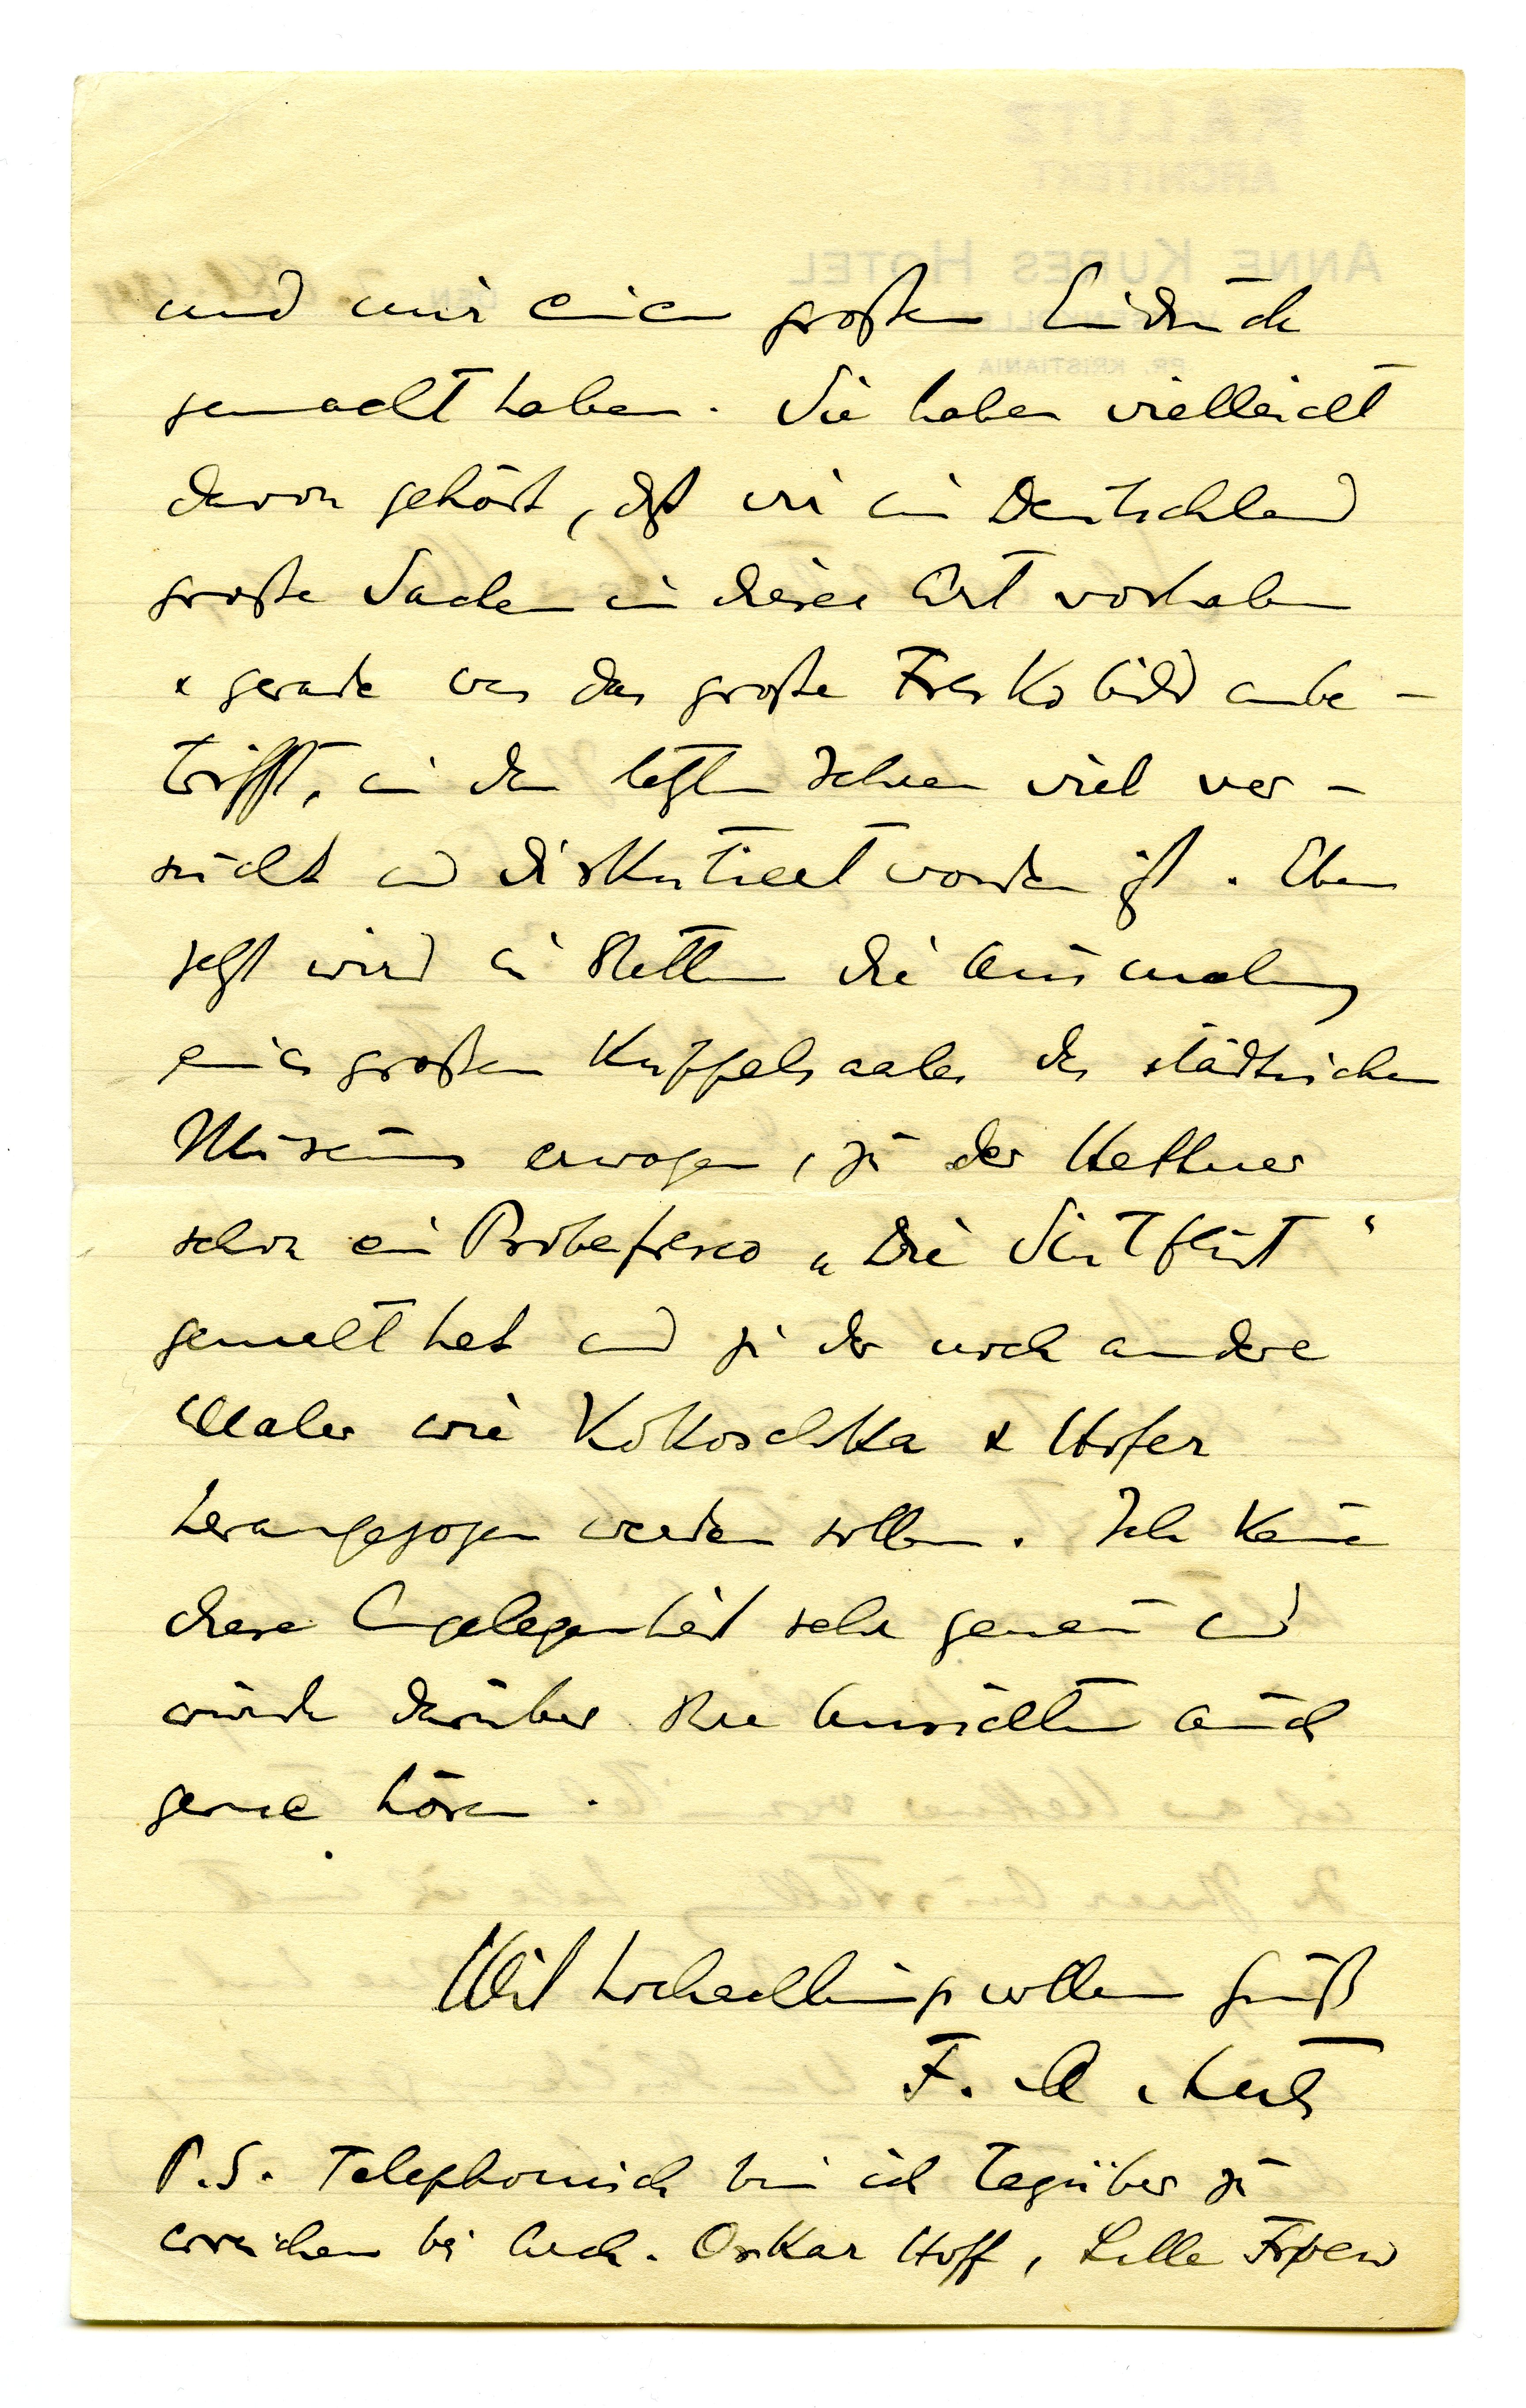 und mir einen großen Eindruck
gemacht haben. Sie haben vielleicht
davon gehört, daß wir in Deutschland
große Sachen in dieser Art vorhaben
& gerade was das große Freskobild anbe-
trifft, in den letzten Jahren viel ver-
sucht und diskutiert worden ist. Eben
jetzt wird in Stettin die Ausmalung
eines großen Kuppelsaales des städtischen
Museums erwogen, zu der Hettner
schon ein Probefresco „Die Sintflut“
gemalt hat und zu der noch andere
Maler wie Kokoschka & Hofer
herangezogen werden sollen. Ich kenne
diese Angelegenheit sehr genau und
würde darüber Ihre Ansichten auch
gerne hören.
Mit hochachtungsvollem Gruß
F. A. Lutz
P.S. Telephonisch bin ich tagsüber zu
erreichen bei Arch. Oskar Hoff, Lille Frøen
F. A. LUTZ
ARCHITEKT
ANNE KURES HOTEL
PR. KRISTIANIA
DEN